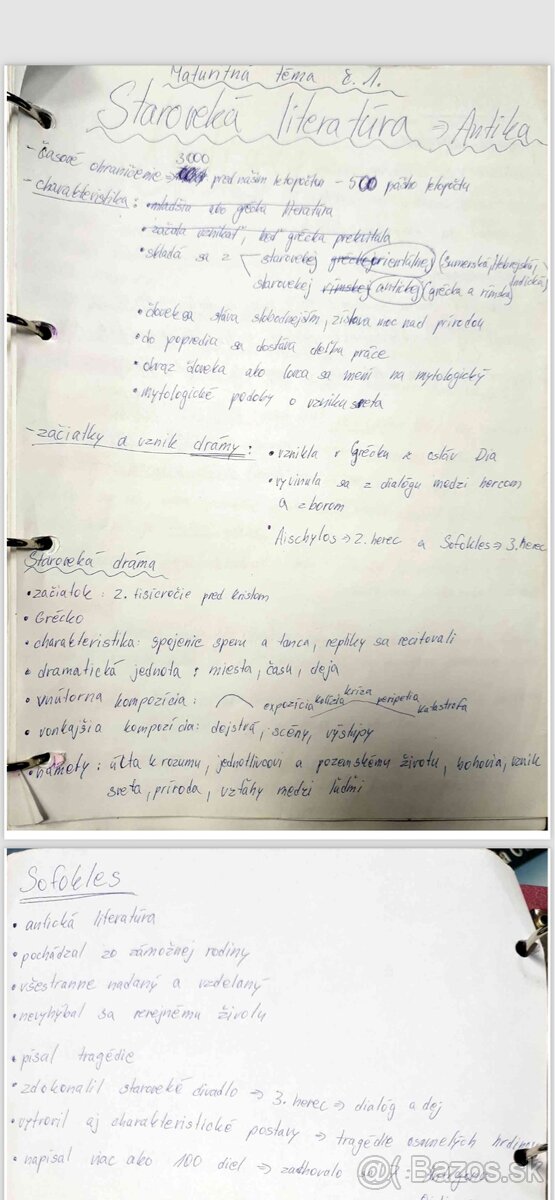 Maturitná téma č. 1.
Staroveká literatúra ⇒ Antika
- časové ohraničenie ⇒ 3000 pred naším letopočtom - 500 nášho letopočtu
- charakteristika: • mladšia ako grécka literatúra
• začala vznikať, keď grécka prekvitala
• skladá sa z starovekej gréckej orientálnej (sumerská, hebrejská, indická)
starovekej rímskej antickej (grécka a rímska)
• človek sa stáva slobodnejším, získava moc nad prírodou
• do popredia sa dostáva deľba práce
• obraz človeka ako lovca sa mení na mytologický
• mytologické podoby o vzniku sveta
- začiatky a vznik drámy: • vznikla v Grécku z osláv Dia
• vyvinula sa z dialógu medzi hercom
a zborom
• Aischylos ⇒ 2. herec a Sofokles ⇒ 3. herec
Staroveká dráma
• začiatok: 2. tisícročie pred Kristom
• Grécko
• charakteristika: spojenie spevu a tanca, repliky sa recitovali
• dramatická jednota: miesta, času, deja
• vnútorná kompozícia: expozícia kolízia kríza peripetia katastrofa
• vonkajšia kompozícia: dejstvá, scény, výstupy
• námety: úcta k rozumu, jednotlivcovi a pozemskému životu, bohovia, vznik
sveta, príroda, vzťahy medzi ľuďmi
Sofokles
• antická literatúra
• pochádzal zo zámožnej rodiny
• všestranne nadaný a vzdelaný
• nevyhýbal sa verejnému životu
• písal tragédie
• zdokonalil staroveké divadlo ⇒ 3. herec ⇒ dialóg a dej
• vytvoril aj charakteristické postavy ⇒ tragédie osamelých hrdinov
• napísal viac ako 100 diel ⇒ zachovalo sa 7:
Bazos.sk